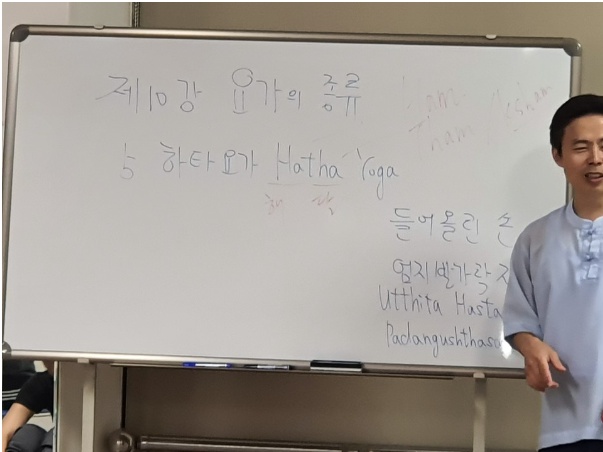 제10강 요가의 종류
5 하타요가 Hatha Yoga
해 달
들어올린 손
엄지발가락
Utthita Hasta
Padangushthasa